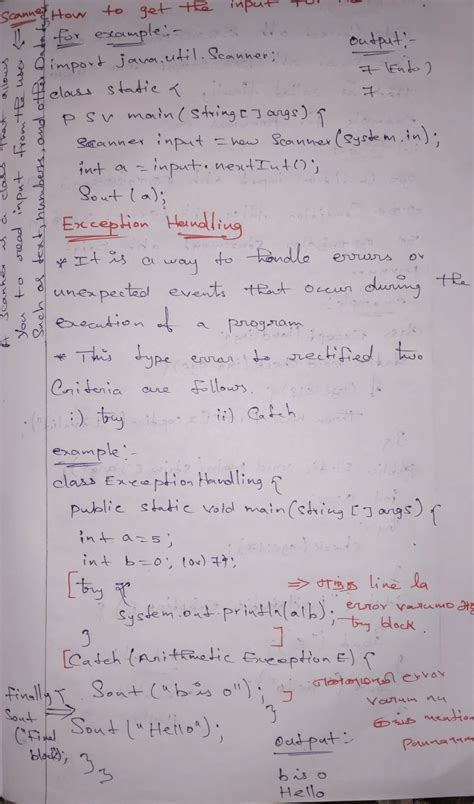 Scanner How to get the input for the
for example:-
import java.util.Scanner;
class static {
P S V main (String [] args) {
Scanner input = new Scanner (System.in);
int a = input.nextInt();
Sout (a);
output:-
7 (Enter)
7
A Scanner is a class that allows
you to read input from the user
such as text, numbers, and other Data types
Exception Handling
* It is a way to handle errors or
unexpected events that occur during the
execution of a program
* This type error to rectified two
Criteria are follows.
i) try ii) Catch
example:-
class Exception Handling {
public static void main (String [] args) {
int a=5;
int b=0; (or) 7;
[try {
System.out.println(a/b);
}
]
⇒ line la
error varumo
try block.
[Catch (Arithmetic Exception E) {
Sout ("b is 0");
}
error
varum nu
mention
Finally {
Sout
("Final
block");
Sout ("Hello");
}
}
output:-
b is 0
Hello